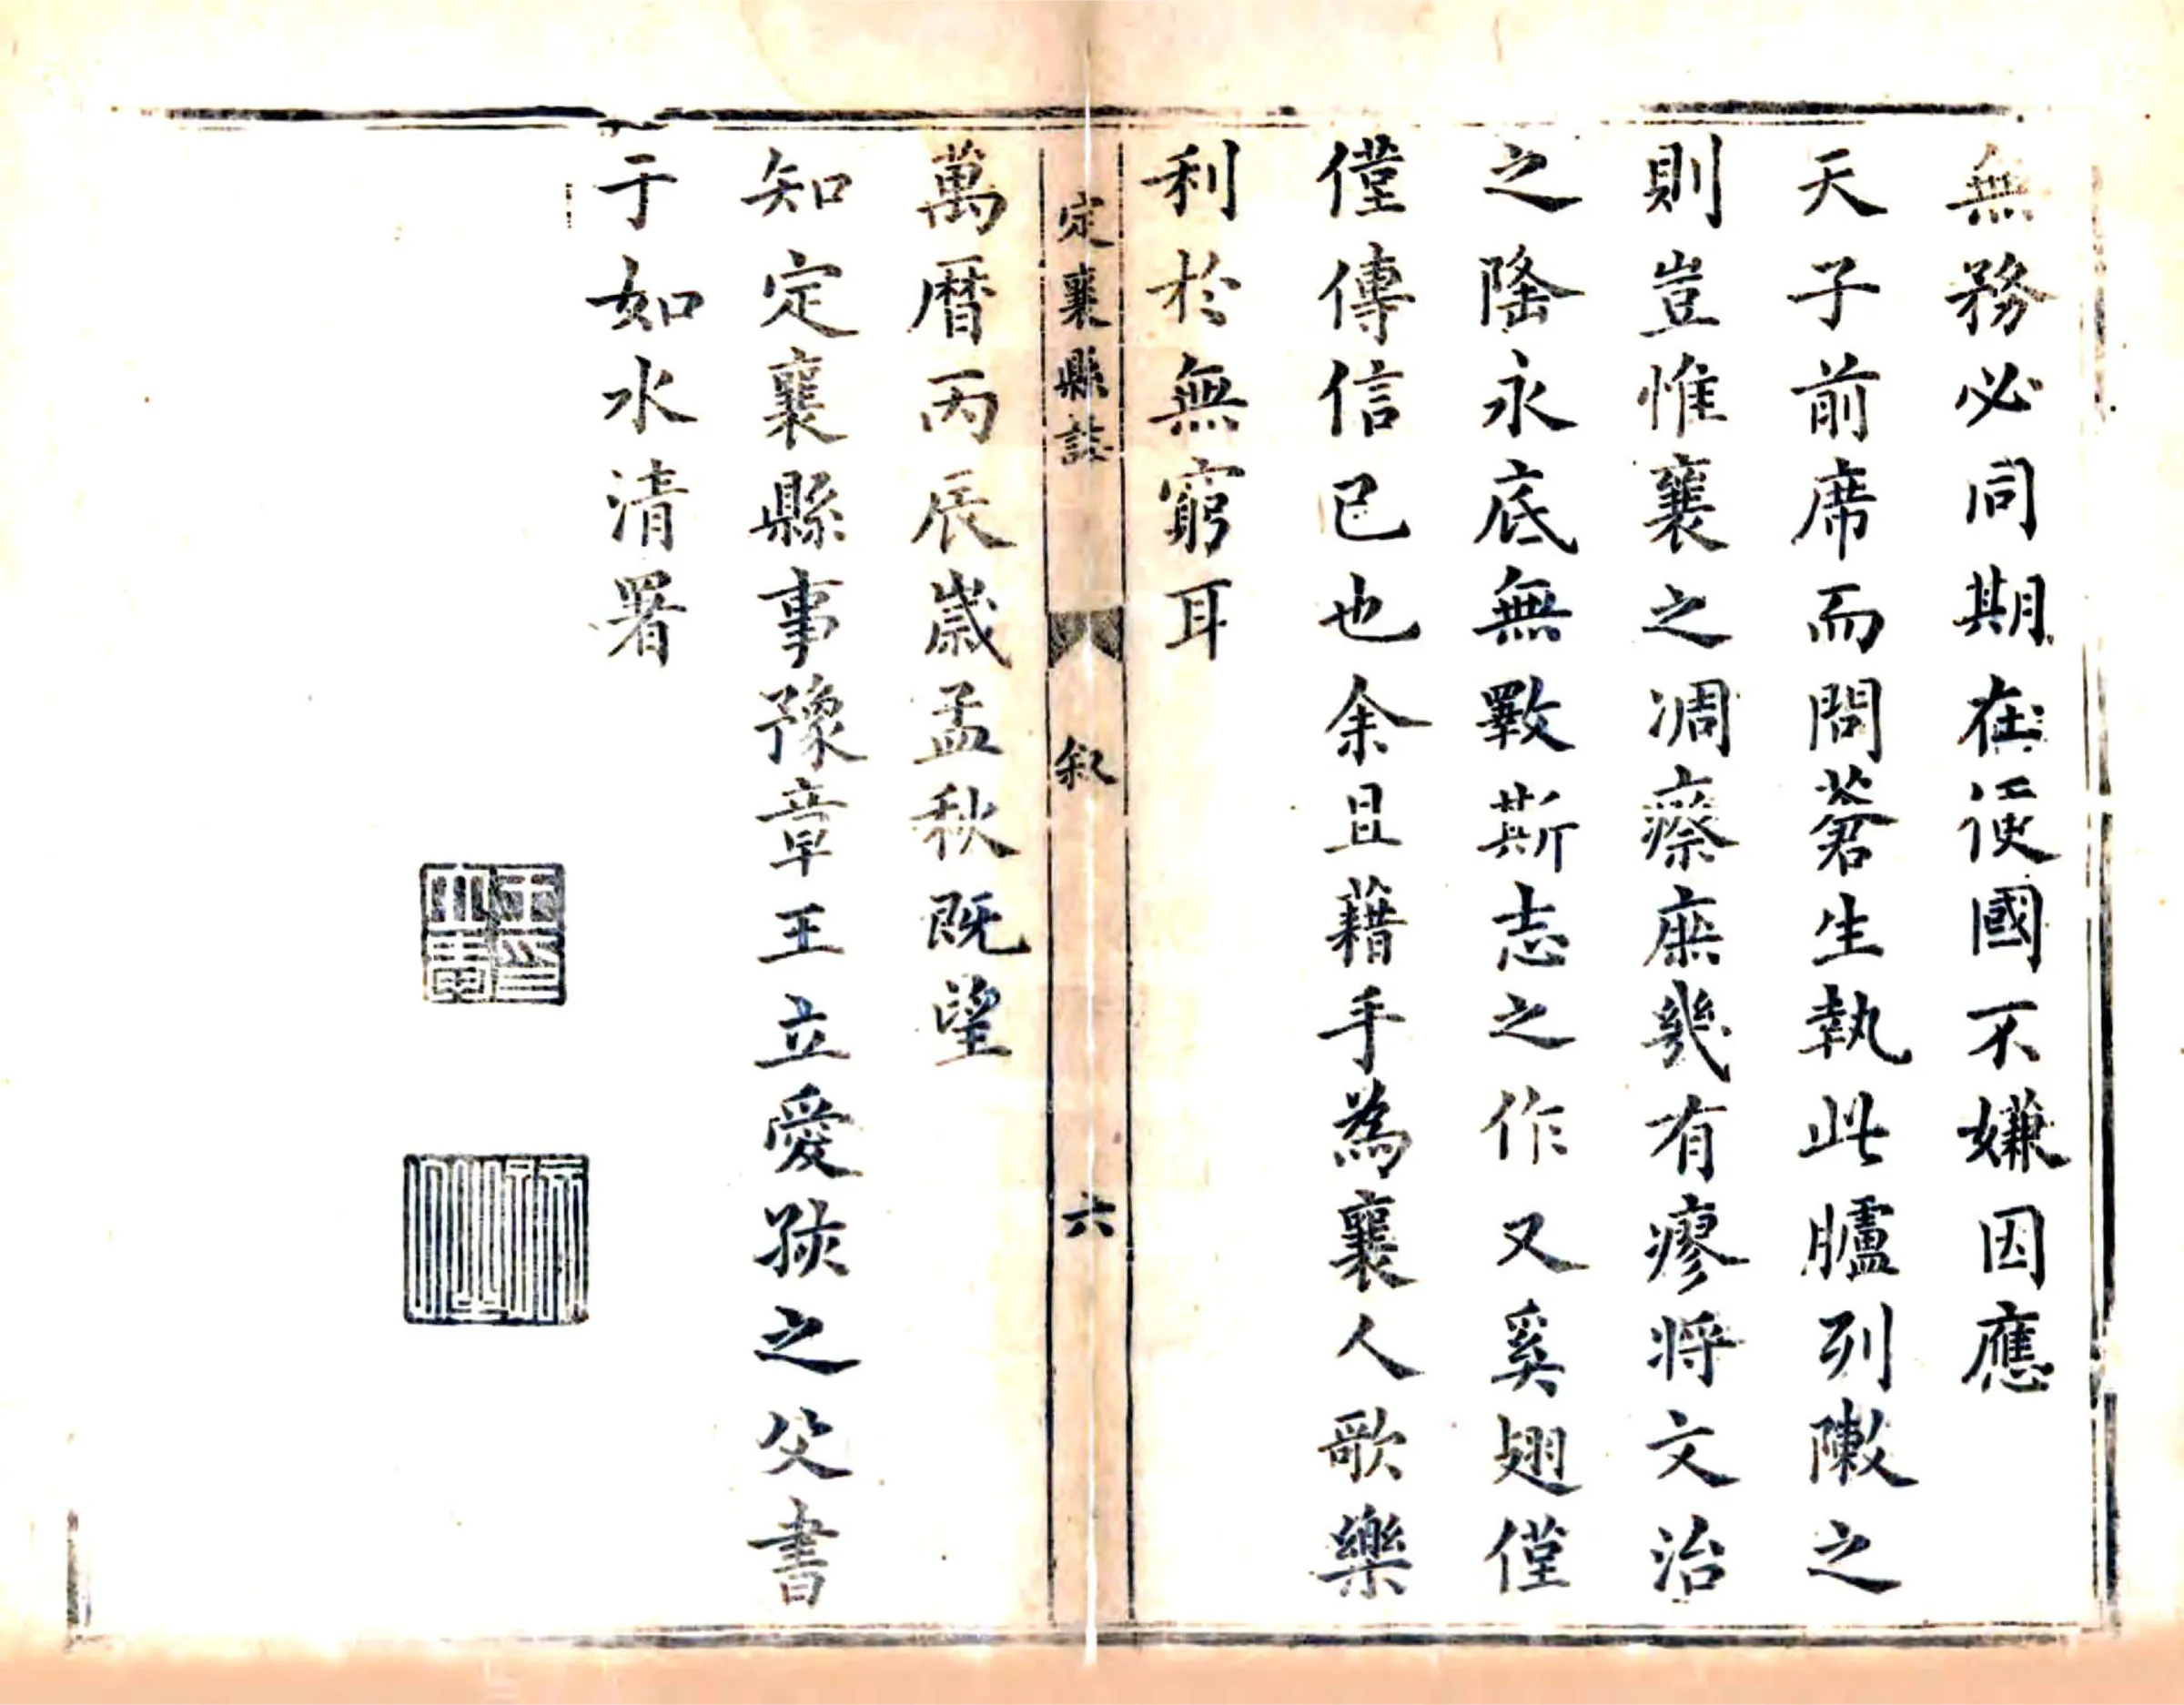 無務必同期在便國不嫌因應
天子前席而問蒼生執此臚列敶之
則豈惟襄之凋瘵庶幾有瘳將文治
之隆永底無斁斯志之作又奚翅僅
僅傳信已也余且藉手為襄人歌樂
利於無窮耳
定襄縣誌
叙
六
萬曆丙辰歲孟秋既望
知定襄縣事豫章王立愛㧡之父書
于如水清署